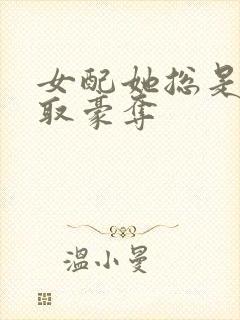 女配她总是
取豪夺
温小曼